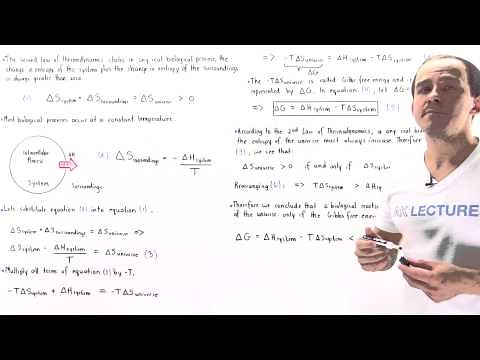 • The second law of thermodynamics states in any real biological process, the
change in entropy of the system plus the change in entropy of the surroundings
is always greater than zero.
(1) ΔSsystem + ΔSsurroundings = ΔSuniverse > 0
• Most biological processes occur at a constant temperature.
System
ΔH
Surroundings
(2) ΔSsurroundings = - ΔHsystem
T
• Lets substitute equation (2) into equation (1).
ΔSsystem + ΔSsurroundings = ΔSuniverse =>
ΔSsystem - ΔHsystem = ΔSuniverse (3)
T
• Multiply all terms of equation (3) by -T.
-TΔSsystem + ΔHsystem = -TΔSuniverse
=> -TΔSuniverse = ΔHsystem - TΔSsystem
ΔG
• The -TΔSuniverse is called Gibbs free energy and i
represented by ΔG. In equation (4), let ΔG=
=> ΔG = ΔHsystem - TΔSsystem (5)
• According to the 2nd Law of Thermodynamics, a
the entropy of the universe must always increase. Therefore
we see that:
ΔSuniverse > 0 if and only if ΔSsyste
Rearranging (6): => TΔSsystem > ΔHsy
• Therefore we conclude that a biological
of the universe only if the Gibbs free ener
ΔG = ΔHsystem - TΔSsystem <
AK LECTURE